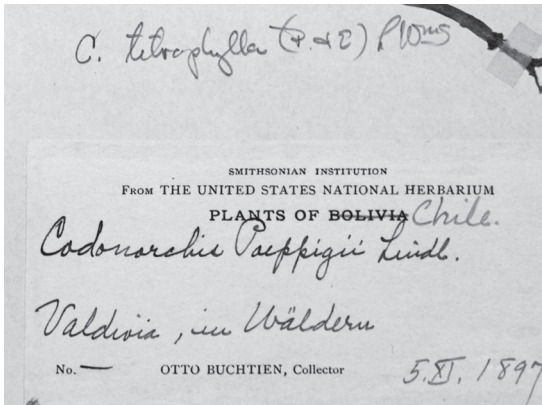 C. tetraphylla (P. & E.)
SMITHSONIAN INSTITUTION
FROM THE UNITED STATES NATIONAL HERBARIUM
PLANTS OF BOLIVIA Chile.
Codonorchis Poeppigii Lindl.
Valdivia, in Wäldern
No. — OTTO BUCHTIEN, Collector
5.XI.1897